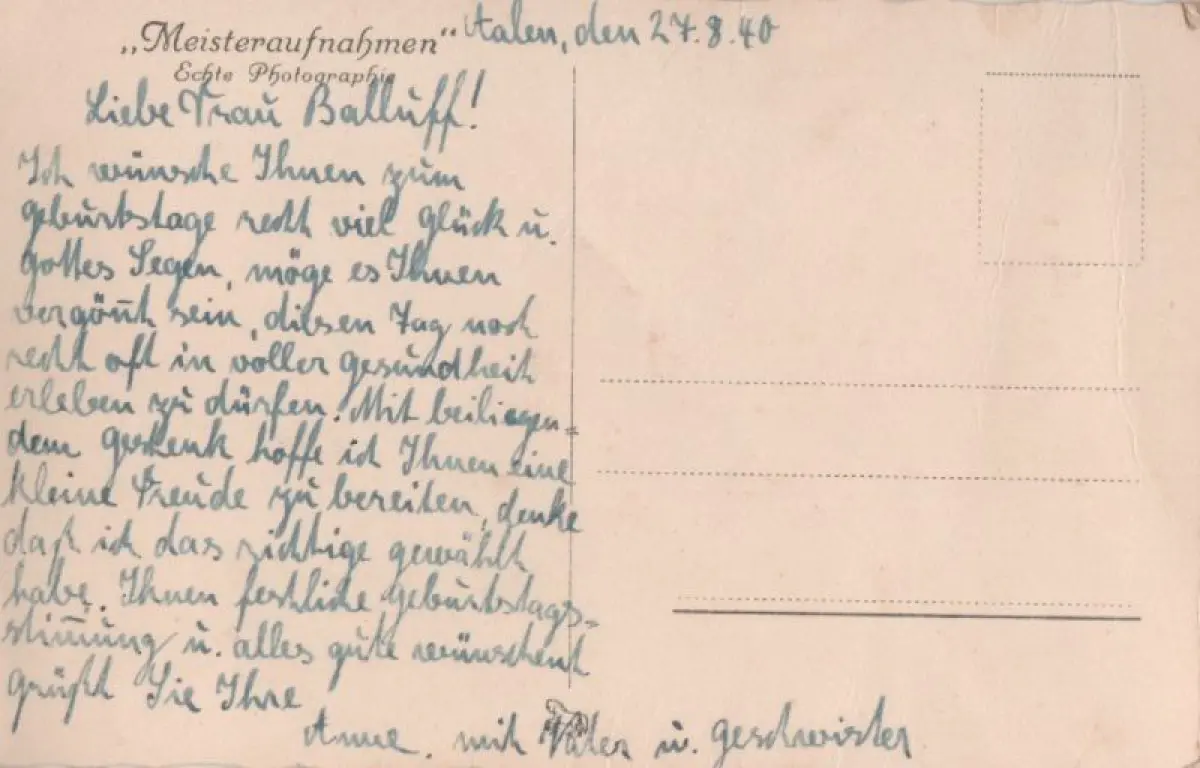 „Meisteraufnahmen“
Echte Photographie
Aalen, den 27.8.40
Liebe Frau Balluff!
Ich wünsche Ihnen zum
Geburtstage recht viel Glück u.
Gottes Segen, möge es Ihnen
vergön̄t sein, diesen Tag noch
recht oft in voller Gesundheit
erleben zu dürfen. Mit beiliegen=
dem Geschenk hoffe ich Ihnen eine
kleine Freude zu bereiten, denke
daß ich das richtige gewählt
habe. Ihnen festliche Geburtstags=
stim̄ung u. alles gute wünschent
grüßt Sie Ihre
Anne, mit Vater u. Geschwister